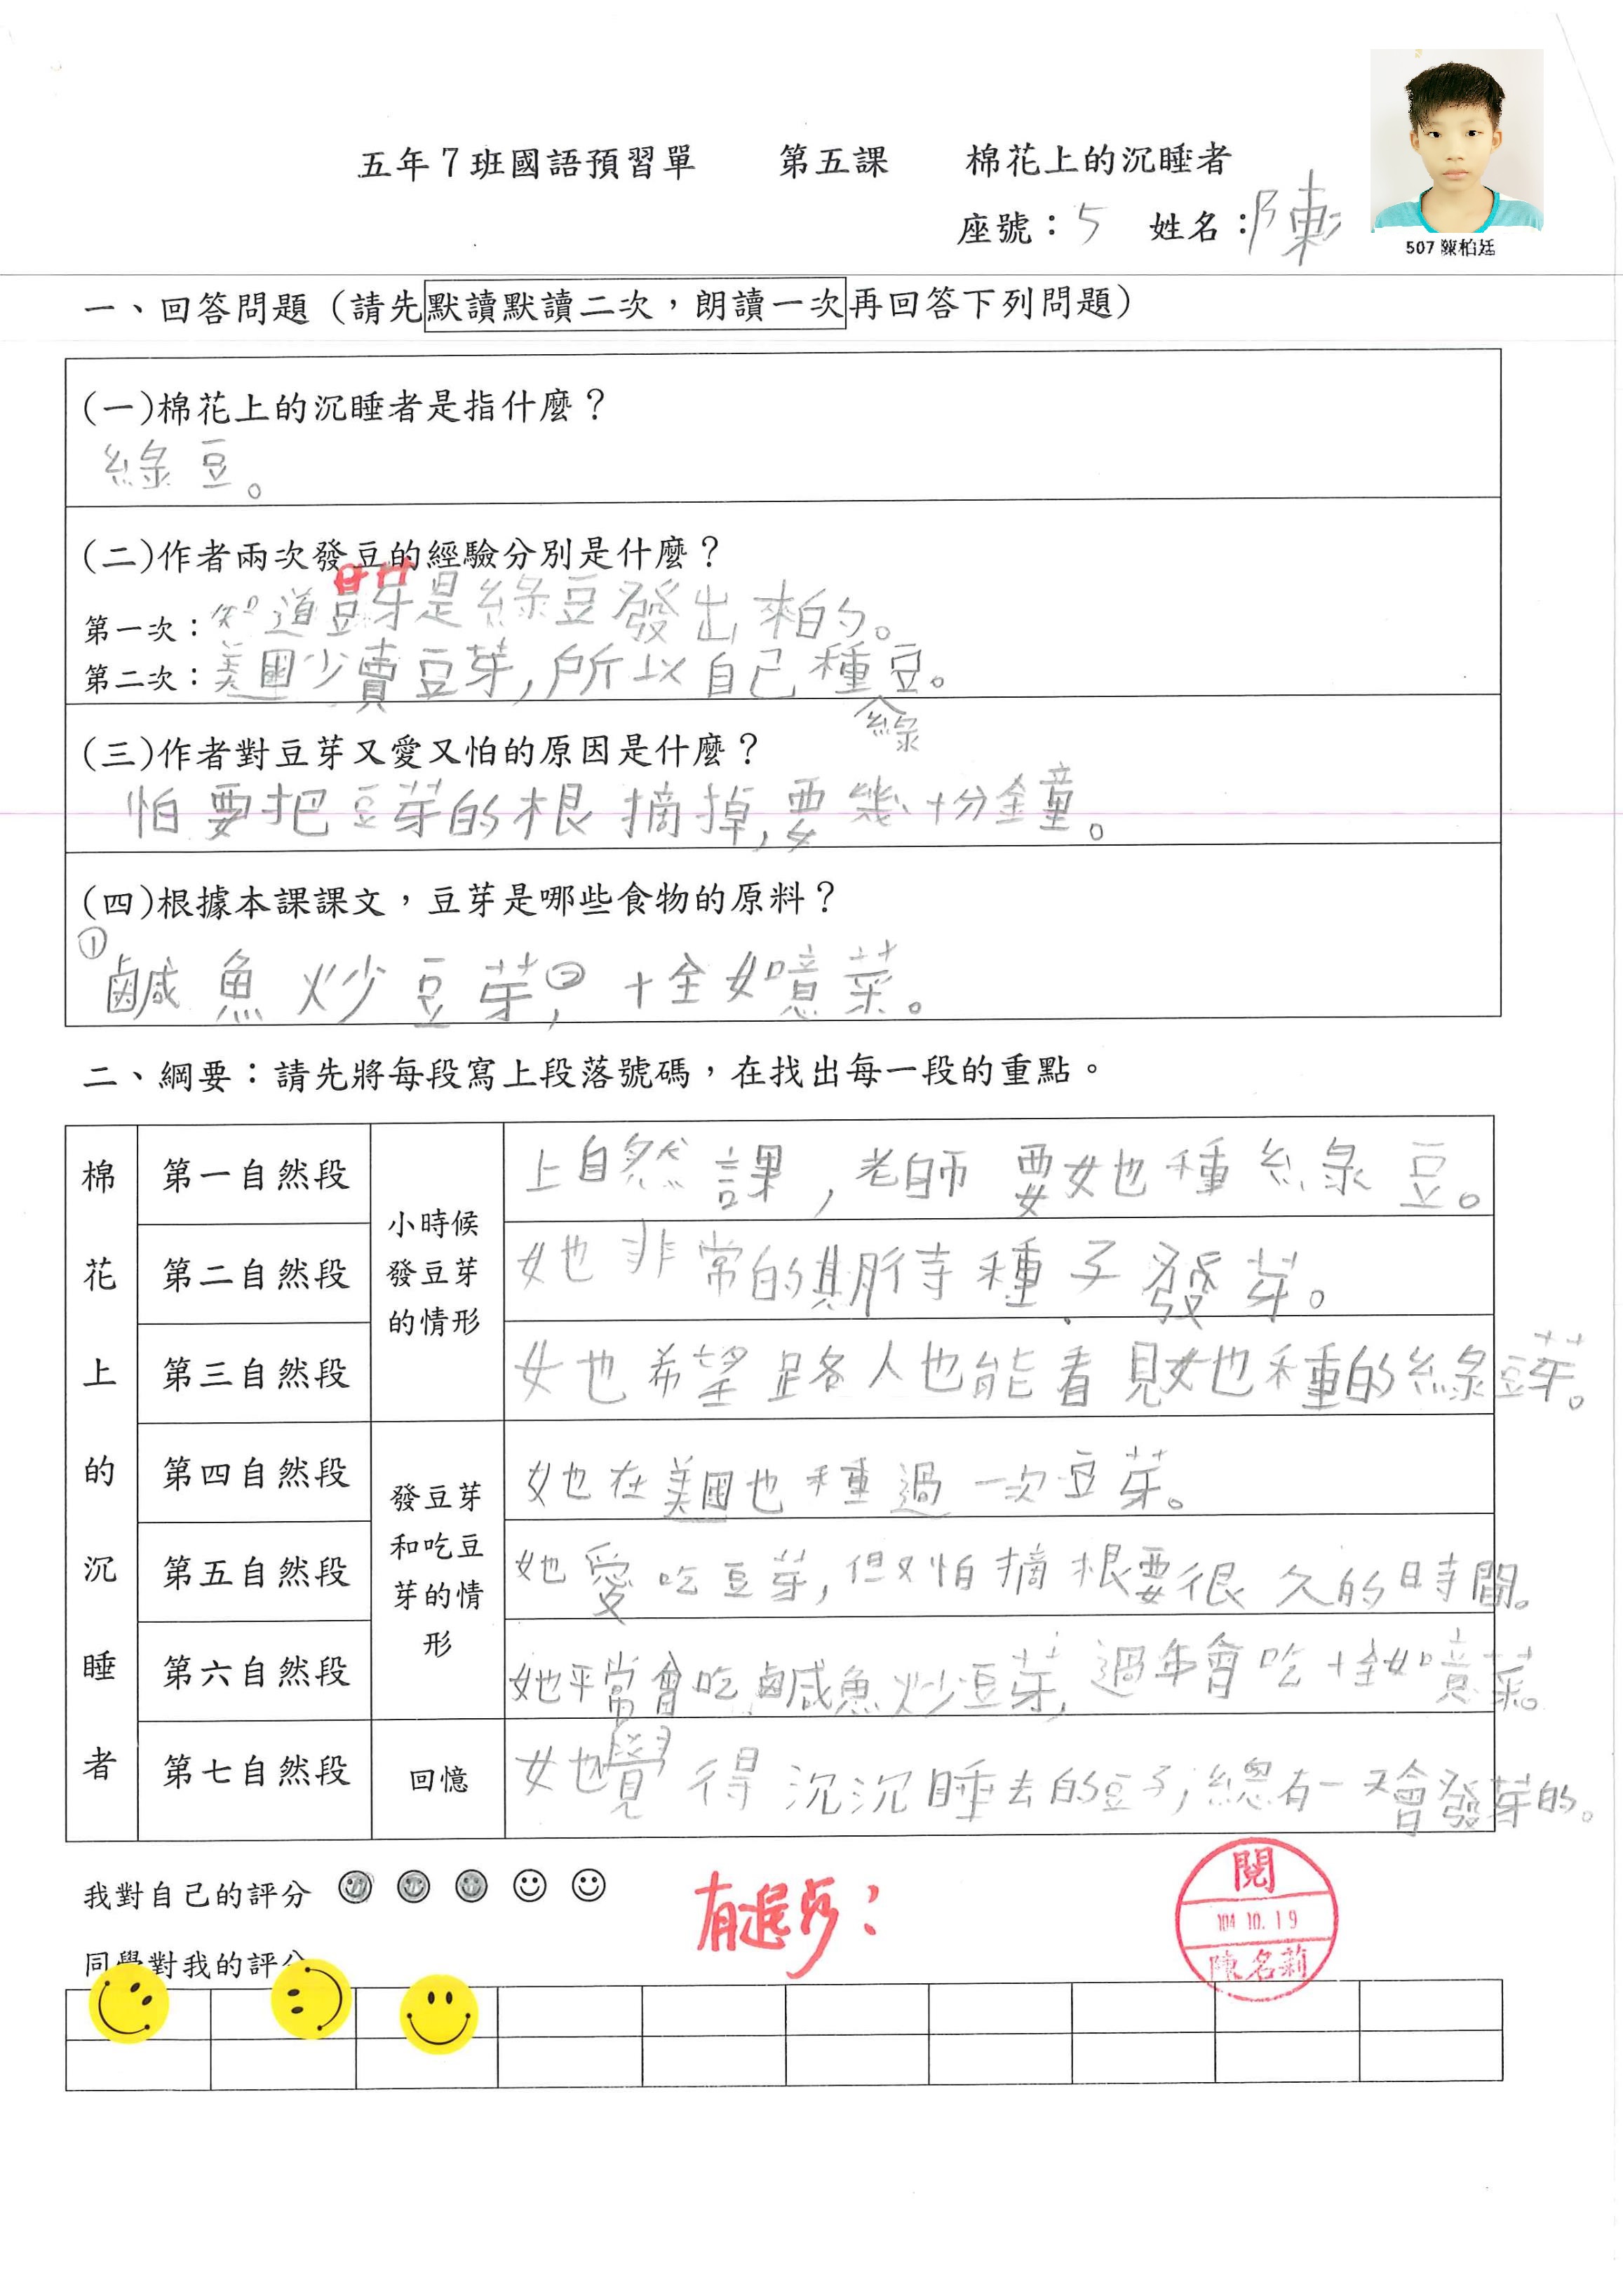 五年7班國語預習單 第五課 棉花上的沉睡者
座號：5 姓名：陳
507 陳柏廷
一、回答問題（請先默讀默讀二次，朗讀一次再回答下列問題）
(一)棉花上的沉睡者是指什麼？
綠豆。
(二)作者兩次發豆的經驗分別是什麼？
第一次：知道豆芽是綠豆發出來的。
第二次：美國少賣豆芽，所以自己種綠豆。
(三)作者對豆芽又愛又怕的原因是什麼？
怕要把豆芽的根摘掉，要幾十分鐘。
(四)根據本課課文，豆芽是哪些食物的原料？
①鹹魚炒豆芽，②十全如噫菜。
二、綱要：請先將每段寫上段落號碼，在找出每一段的重點。
棉花上的沉睡者
小時候發豆芽的情形
第一自然段 上自然課，老師要她種綠豆。
第二自然段 她非常的期待種子發芽。
第三自然段 她希望路人也能看見她種的綠豆芽。
發豆芽和吃豆芽的情形
第四自然段 她在美國也種過一次豆芽。
第五自然段 她愛吃豆芽，但又怕摘根要很久的時間。
第六自然段 她平常會吃鹹魚炒豆芽，過年會吃十全如噫菜。
第七自然段 回憶 她覺得沉沉睡去的豆子，總有一天會發芽的。
我對自己的評分
有進步：
閱
104.10.19
陳名莉
同學對我的評分